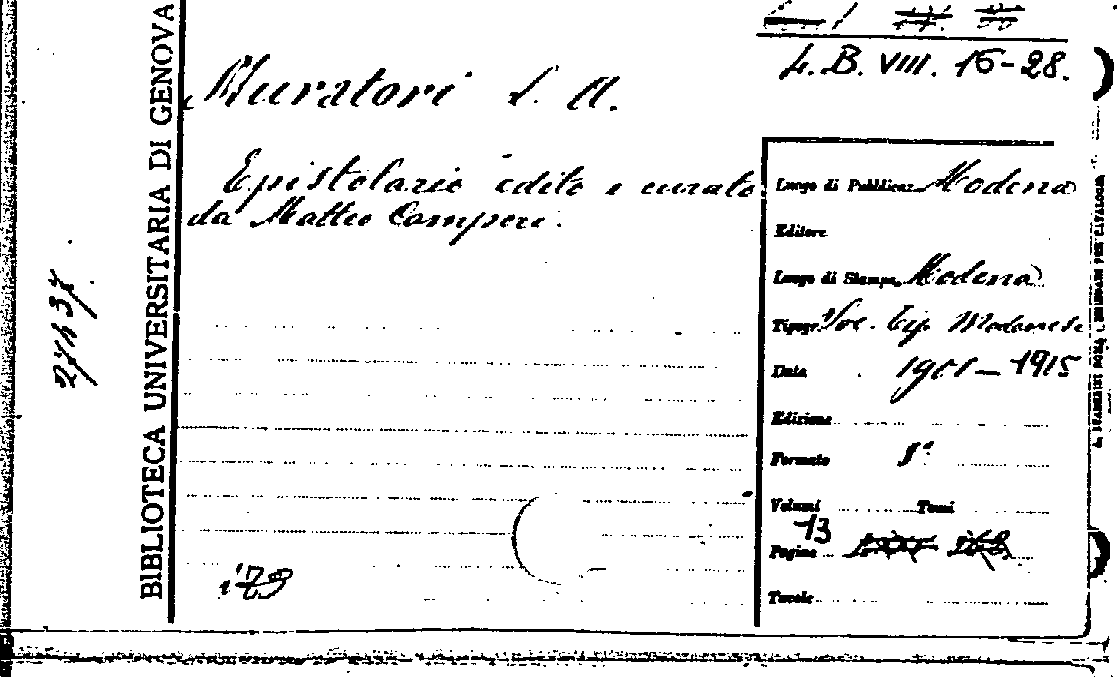 L. B. VIII. 16-28.
Muratori L. A.
Epistolario edito e curato
da Matteo Campori.
BIBLIOTECA UNIVERSITARIA DI GENOVA
Luogo di Pubblicaz. Modena
Editore
Luogo di Stampa Modena
Tipogr. Soc. Tip. Modenese
Data 1901-1915
Edizione
Formato 8°
Volumi Tomi
13
Pagine
Tavole